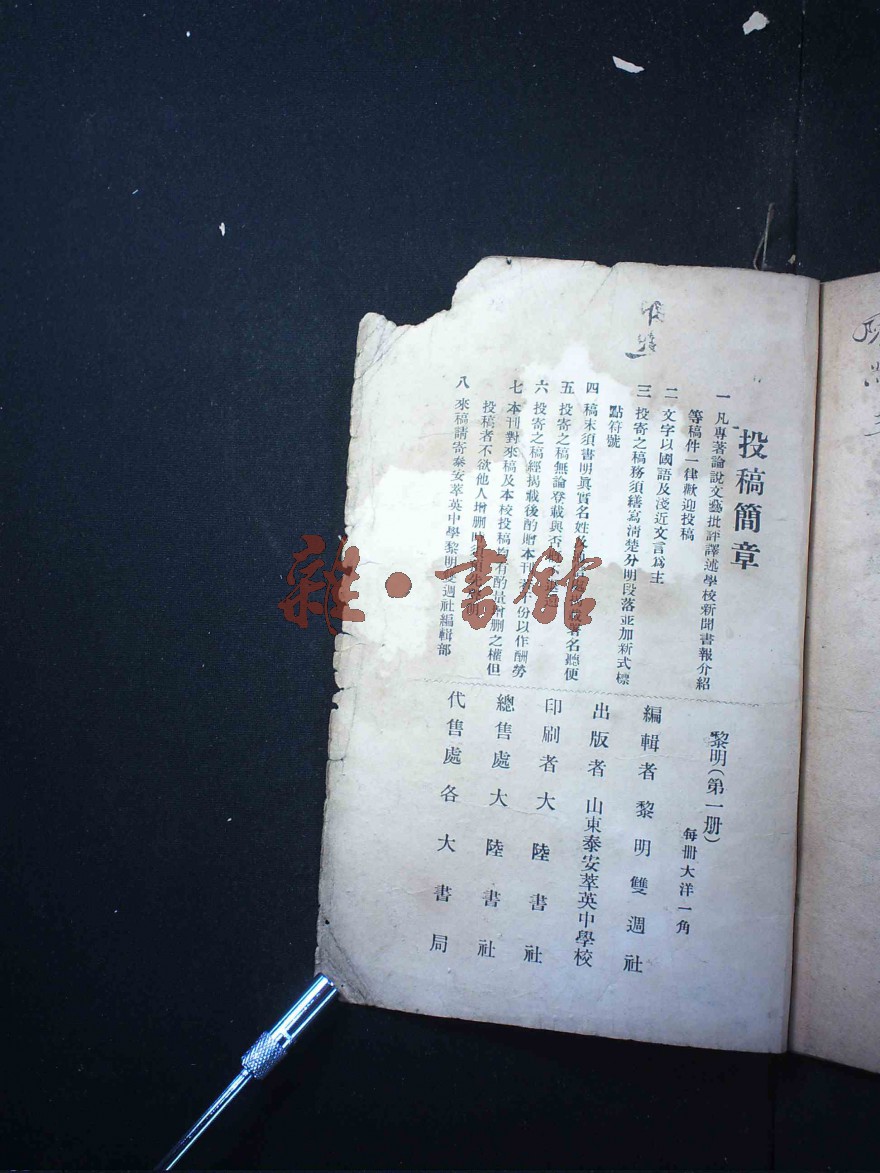 投稿簡章
一 凡專著論說文藝批評譯述學校新聞書報介紹
等稿件一律歡迎投稿
二 文字以國語及淺近文言爲主
三 投寄之稿務須繕寫清楚分明段落並加新式標
點符號
四 稿末須書明眞實名姓及署名聽便
五 投寄之稿無論登載與否
六 投寄之稿經揭載後酌贈本刊份以作酬勞
七 本刊對來稿及本校投稿均有酌量增刪之權但
投稿者不欲他人增刪
八 來稿請寄泰安萃英中學黎明雙週社編輯部
黎明（第一册）
每册大洋一角
編輯者 黎明雙週社
出版者 山東泰安萃英中學校
印刷者 大陸書社
總售處 大陸書社
代售處 各大書局
雜·書館